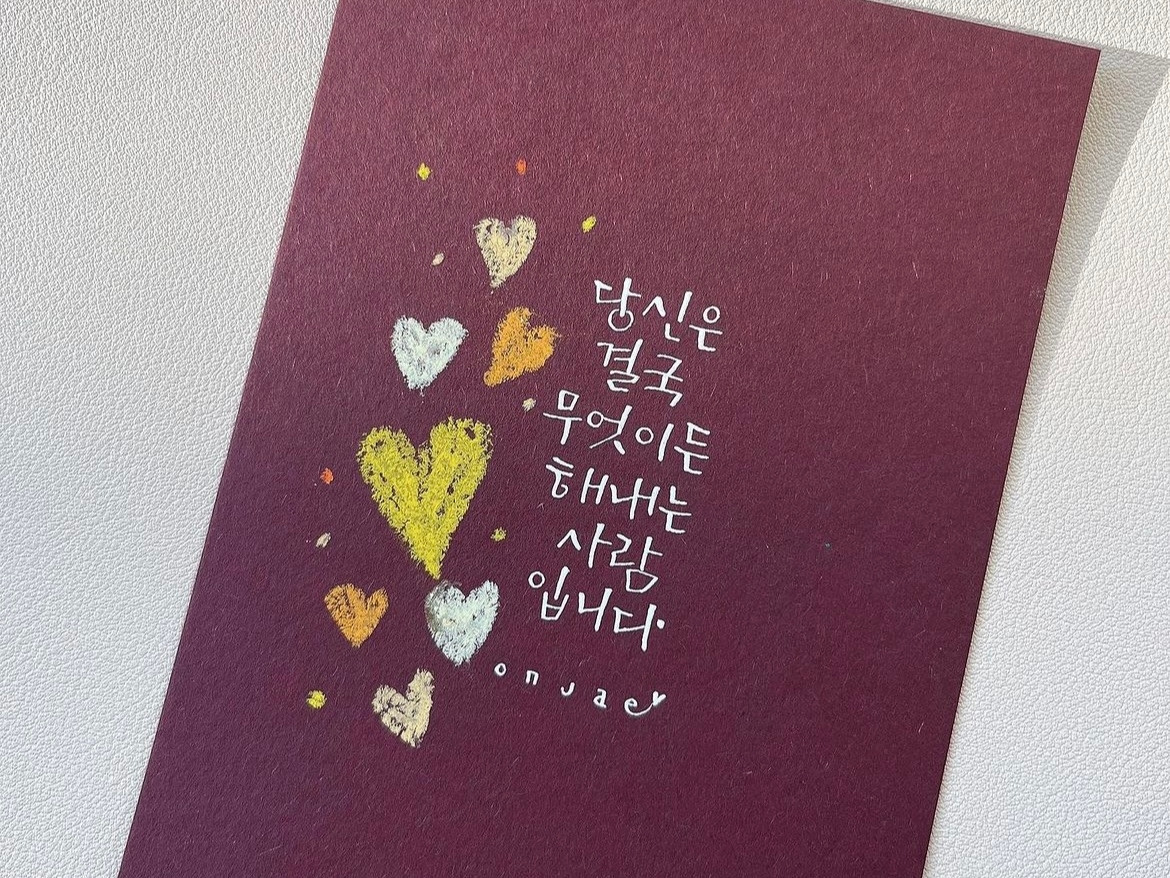 당신은
결국
무엇이든
해내는
사람
입니다.
onjae